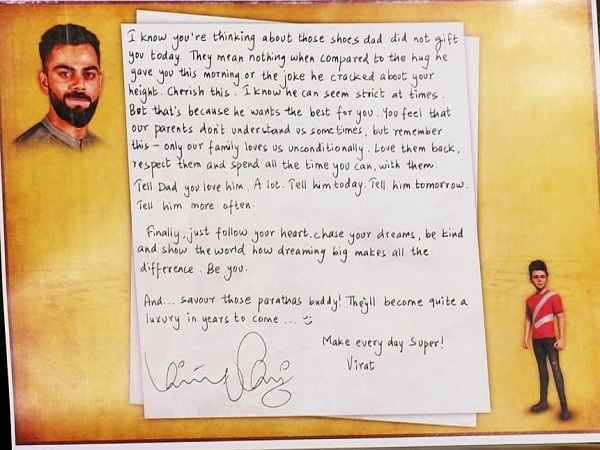 I know you're thinking about those shoes dad did not gift
you today. They mean nothing when compared to the hug he
gave you this morning or the joke he cracked about your
height. Cherish this. I know he can seem strict at times.
But that's because he wants the best for you. You feel that
our parents don't understand us sometimes, but remember
this - only our family loves us unconditionally. Love them back,
respect them and spend all the time you can, with them.
Tell Dad you love him. A lot. Tell him today. Tell him tomorrow.
Tell him more often.
Finally, just follow your heart. chase your dreams, be kind
and show the world how dreaming big makes all the
difference. Be you.
And... savour those parathas buddy! They'll become quite a
luxury in years to come ...
Make every day Super!
Virat